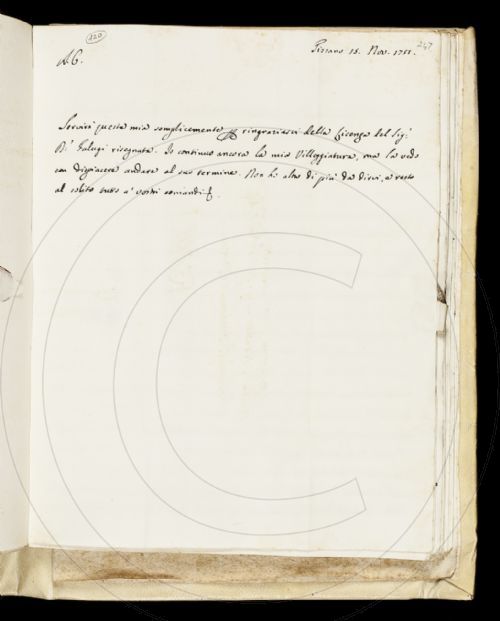 220
247
15. Nov. 1751.
A. C.
Servirà questa mia semplicemente per ringraziarvi della licenza del Sig.r
risegnata. Io continuo ancora la mia Villeggiatura, ma la vedo
con dispiacere andare al suo termine. Non ho altro di più da dirvi, e resto
al solito tutto a' vostri comandi